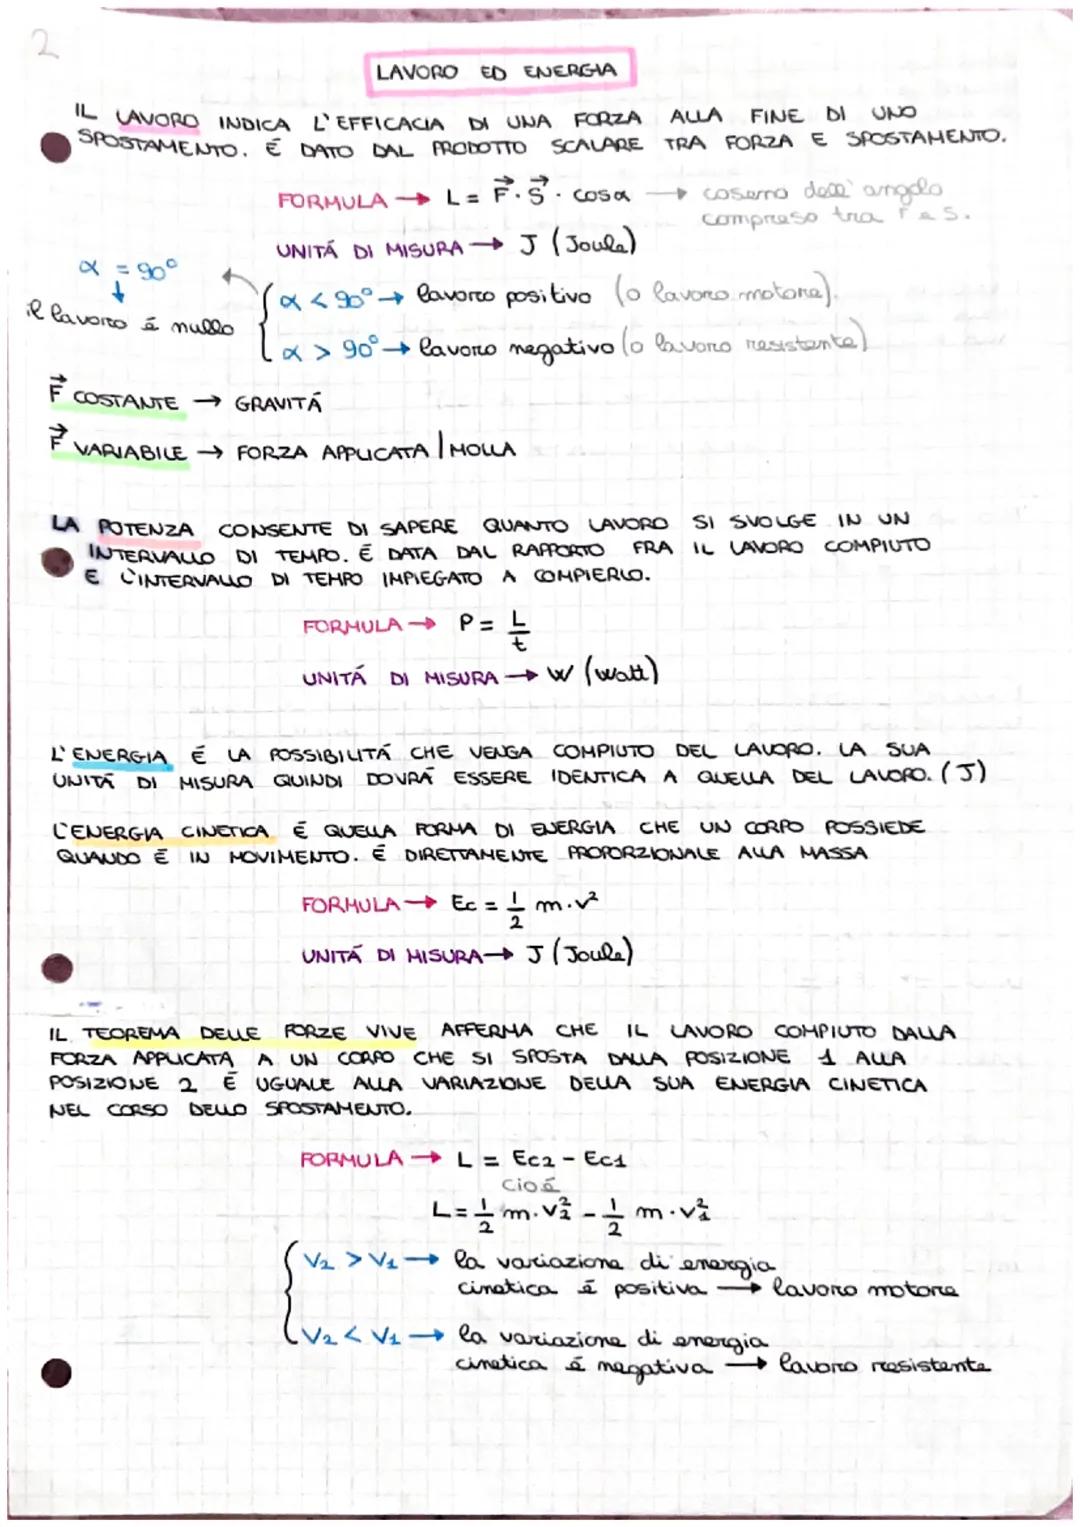 2
LAVORO ED ENERGIA
IL LAVORO INDICA L'EFFICACIA DI UNA FORZA ALLA FINE DI UNO
SPOSTAMENTO. É DATO DAL PRODOTTO SCALARE TRA FORZA E SPOSTAMENTO.
FORMULA → L = F⃗ · S⃗ · cosα → coseno dell'angolo
compreso tra F e S.
UNITÁ DI MISURA → J (Joule)
α = 90°
↓
il lavoro é nullo
α < 90° → lavoro positivo (o lavoro motore).
α > 90° → lavoro negativo (o lavoro resistente)
F⃗ COSTANTE → GRAVITÁ
F⃗ VARIABILE → FORZA APPLICATA | MOLLA
LA POTENZA CONSENTE DI SAPERE QUANTO LAVORO SI SVOLGE IN UN
INTERVALLO DI TEMPO. É DATA DAL RAPPORTO FRA IL LAVORO COMPIUTO
E L'INTERVALLO DI TEMPO IMPIEGATO A COMPIERLO.
FORMULA → P = L/t
UNITÁ DI MISURA → W (watt)
L'ENERGIA É LA POSSIBILITÁ CHE VENGA COMPIUTO DEL LAVORO. LA SUA
UNITÁ DI MISURA QUINDI DOVRÁ ESSERE IDENTICA A QUELLA DEL LAVORO. (J)
L'ENERGIA CINETICA É QUELLA FORMA DI ENERGIA CHE UN CORPO POSSIEDE
QUANDO É IN MOVIMENTO. É DIRETTAMENTE PROPORZIONALE ALLA MASSA
FORMULA → Ec = 1/2 m·v²
UNITÁ DI MISURA → J (Joule)
IL TEOREMA DELLE FORZE VIVE AFFERMA CHE IL LAVORO COMPIUTO DALLA
FORZA APPLICATA A UN CORPO CHE SI SPOSTA DALLA POSIZIONE 1 ALLA
POSIZIONE 2 É UGUALE ALLA VARIAZIONE DELLA SUA ENERGIA CINETICA
NEL CORSO DELLO SPOSTAMENTO.
FORMULA → L = Ec2 - Ec1
cioé
L = 1/2 m·v₂² - 1/2 m·v₁²
V₂ > V₁ → la variazione di energia
cinetica é positiva → lavoro motore
V₂ < V₁ → la variazione di energia
cinetica é negativa → lavoro resistente